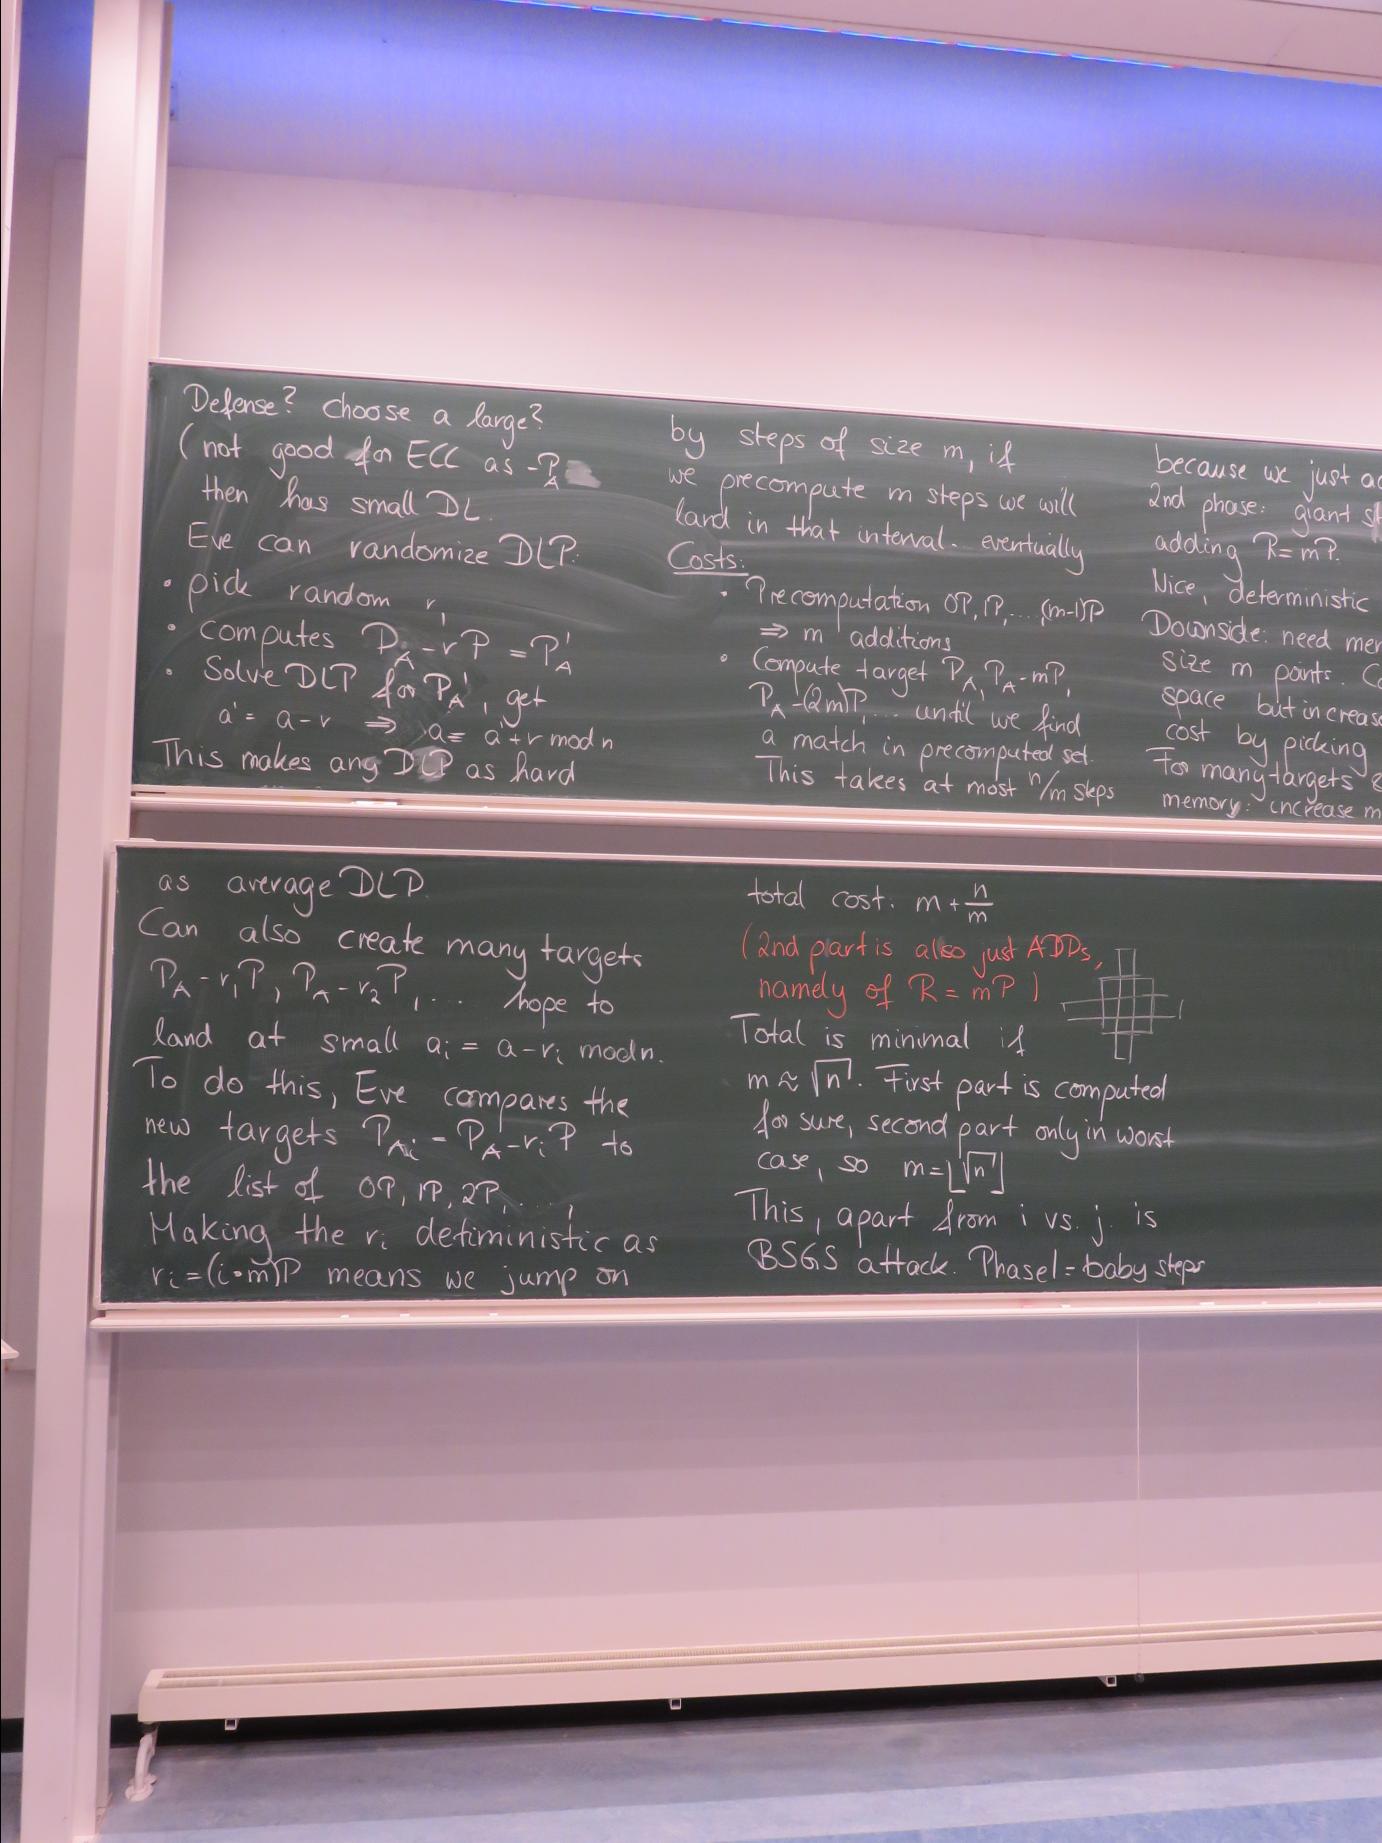 Defense? Choose a large?
(not good for ECC as -P_A
then has small DL.
Eve can randomize DLP:
• pick random r,
• computes P_A - rP = P'_A
• Solve DLP for P'_A, get
a' = a - r ⇒ a ≡ a' + r mod n
This makes any DLP as hard
as average DLP.
Can also create many targets
P_A - r_1P, P_A - r_2P, ... hope to
land at small a_i = a - r_i mod n.
To do this, Eve compares the
new targets P_{A_i} = P_A - r_iP to
the list of 0P, 1P, 2P, ...,
Making the r_i detiministic as
r_i = (i·m)P means we jump on
by steps of size m, if
we precompute m steps we will
land in that interval. eventually
Costs:
• Precomputation 0P, 1P, ... (m-1)P
⇒ m additions
• Compute target P_A, P_A - mP,
P_A - (2m)P, ... until we find
a match in precomputed set.
This takes at most n/m steps
total cost: m + n/m
(2nd part is also just ADDs,
namely of R = mP)
Total is minimal if
m ≈ √n. First part is computed
for sure, second part only in worst
case, so m = ⌊√n⌋
This, apart from i vs. j. is
BSGS attack. Phase 1 = baby steps
because we just
2nd phase: giant
adding R = mP.
Nice, deterministic
Downside: need
size m points.
space but
cost by picking
For many targets &
memory: increase m